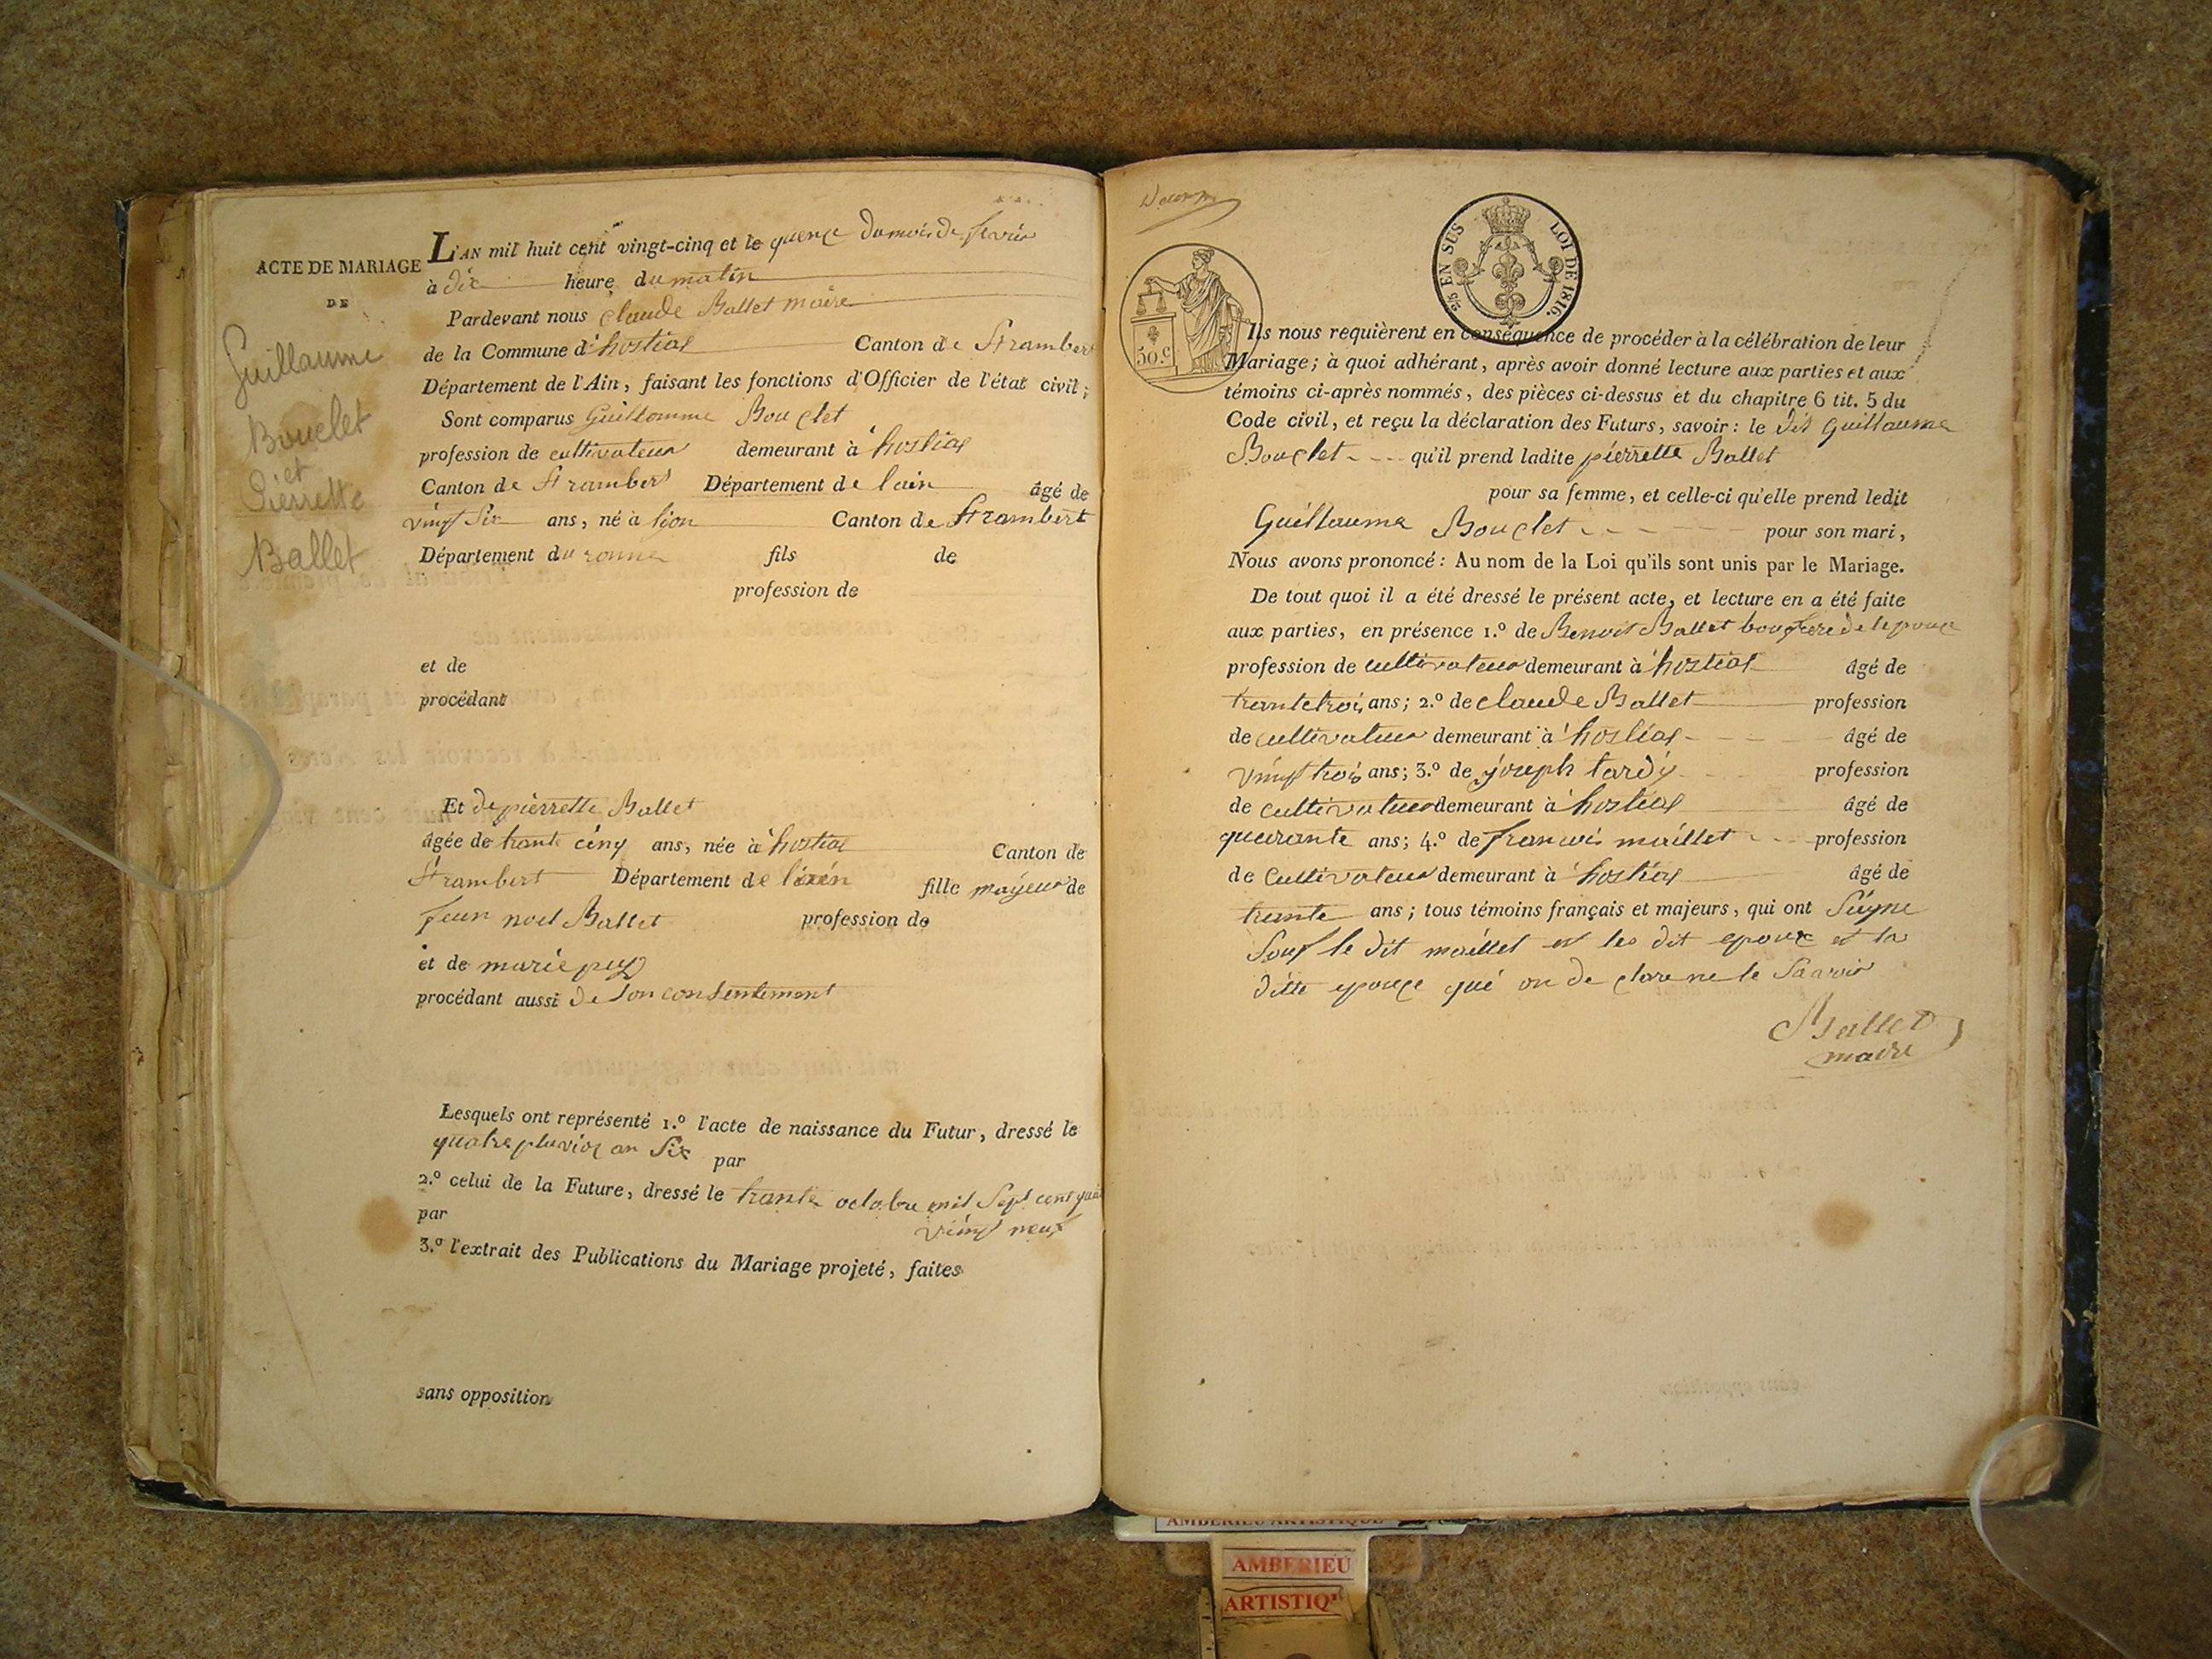 ACTE DE MARIAGE
DE
Guillaume
Bouclet
et
Pierrette
Ballet
L'AN mil huit cent vingt-cinq et le quenze du mois de fevrié
à dix heure du matin
Pardevant nous claude Ballet maire
de la Commune d'hostias Canton de St rambert
Département de l'Ain, faisant les fonctions d'Officier de l'état civil;
Sont comparus Guillomme Bouclet
profession de cultivateur demeurant à hostias
Canton de St rambert Département de lain âgé de
vingt six ans, né à lion Canton de St rambert
Département du ronne fils de
profession de
et de
procédant
Et de pierrette Ballet
âgée de trante cinq ans, née à hostias Canton de
St rambert Département de l'ain fille mayeur de
jean noel Ballet profession de
et de marie puy
procédant aussi de son consentement
Lesquels ont représenté 1.º l'acte de naissance du Futur, dressé le
quatre pluvios an six par
2.º celui de la Future, dressé le trante octobre mil sept cent
par vingt neuf
3.º l'extrait des Publications du Mariage projeté, faites
sans opposition
2/5 EN SUS LOI DE 1816.
50.c
Ils nous requièrent en conséquence de procéder à la célébration de leur
Mariage; à quoi adhérant, après avoir donné lecture aux parties et aux
témoins ci-après nommés, des pièces ci-dessus et du chapitre 6 tit. 5 du
Code civil, et reçu la déclaration des Futurs, savoir: le dit Guillaume
Bouclet qu'il prend ladite pierrette Ballet
pour sa femme, et celle-ci qu'elle prend ledit
Guillaume Bouclet pour son mari,
Nous avons prononcé: Au nom de la Loi qu'ils sont unis par le Mariage.
De tout quoi il a été dressé le présent acte, et lecture en a été faite
aux parties, en présence 1.º de Benoit Ballet boufrere de lepouce
profession de cultivateur demeurant à hostias âgé de
trante trois ans; 2.º de claude Ballet profession
de cultivateur demeurant à hostias âgé de
vingt trois ans; 3.º de joseph tardy profession
de cultivateur demeurant à hostias âgé de
quarante ans; 4.º de francois maillet profession
de cultivateur demeurant à hostias âgé de
trante ans; tous témoins français et majeurs, qui ont signe
souf le dit maillet et les dit epoux et la
ditte epouce qui on de clare ne le savoir
Ballet
maire
AMBERIEU ARTISTIQUE
AMBERIEU
ARTISTIQ